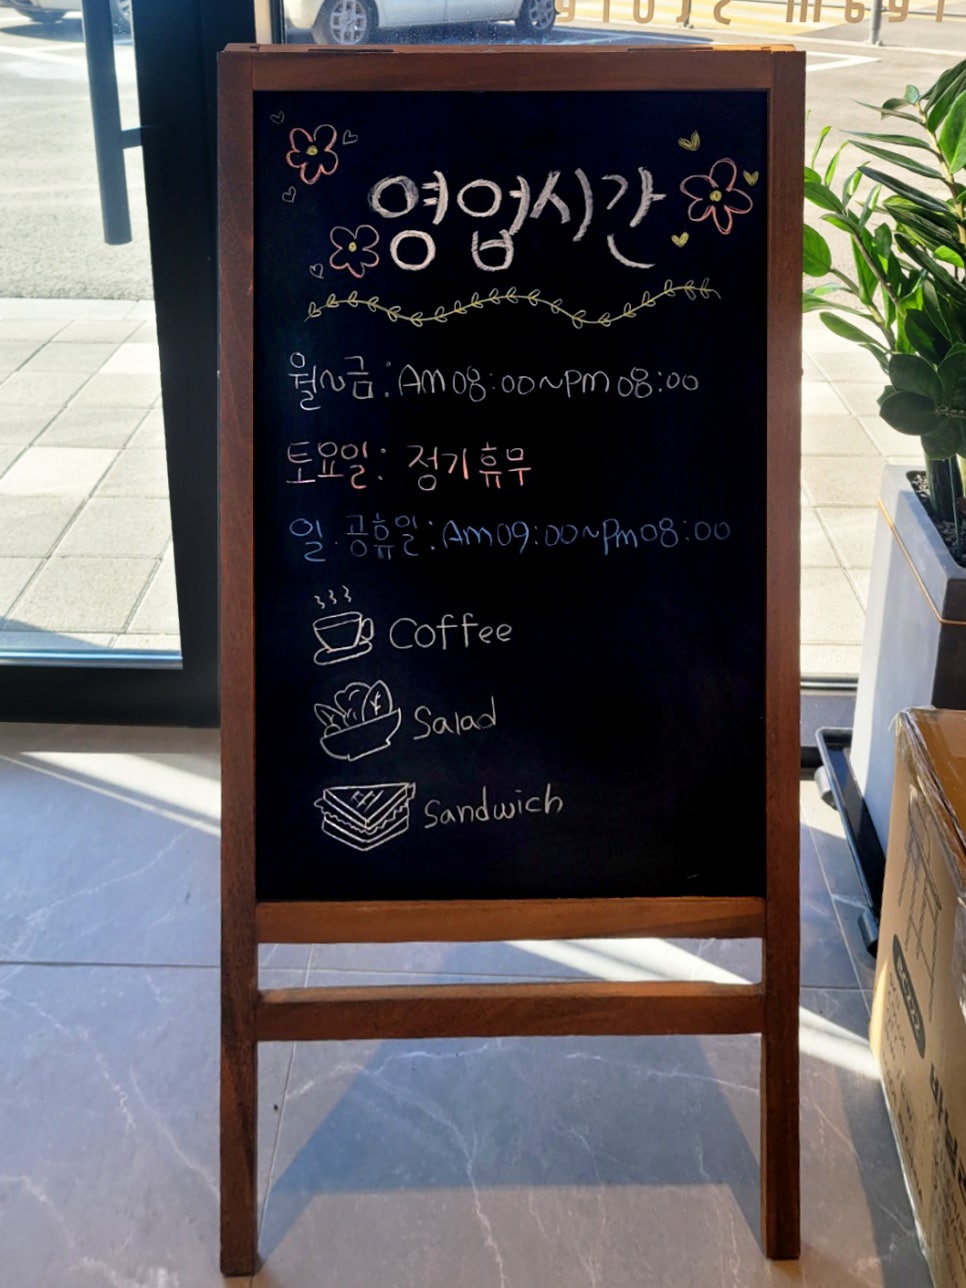 영업시간
월~금 : Am 08:00~Pm 08:00
토요일 : 정기휴무
일·공휴일 : Am 09:00~Pm 08:00
Coffee
Salad
Sandwich